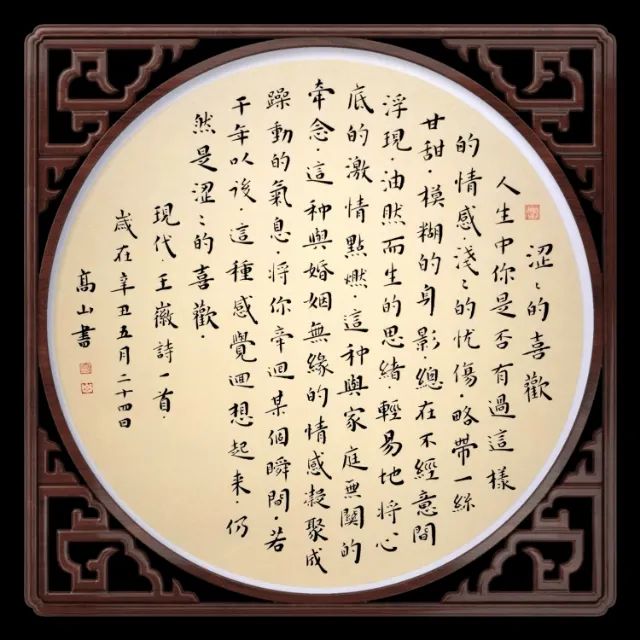 澀〻的喜歡
人生中你是否有過這樣
的情感·淺〻的忧傷·略帶一絲
甘甜·模糊的身影·總在不經意間
浮現·油然而生的思緒·輕易地將心
底的激情點燃·這种與家庭無關的
牽念·這种與婚姻無緣的情感凝聚成
躁動的氣息·將你牽迴某個瞬間·若
干年以後·這種感覺迴想起来·仍
然是澀〻的喜歡·
現代·王薇詩一首·
歲在辛丑五月二十四日
高山書